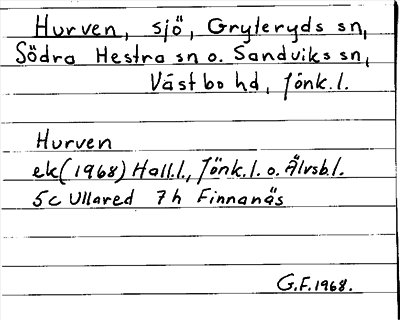 Hurven, sjö, Gryteryds sn,
Södra Hestra sn o. Sandviks sn,
Västbo hd, Jönk.l.
Hurven
ek(1968) Hall.l., Jönk.l. o. Älvsb.l.
5c Ullared 7h Finnanäs
G.F.1968.